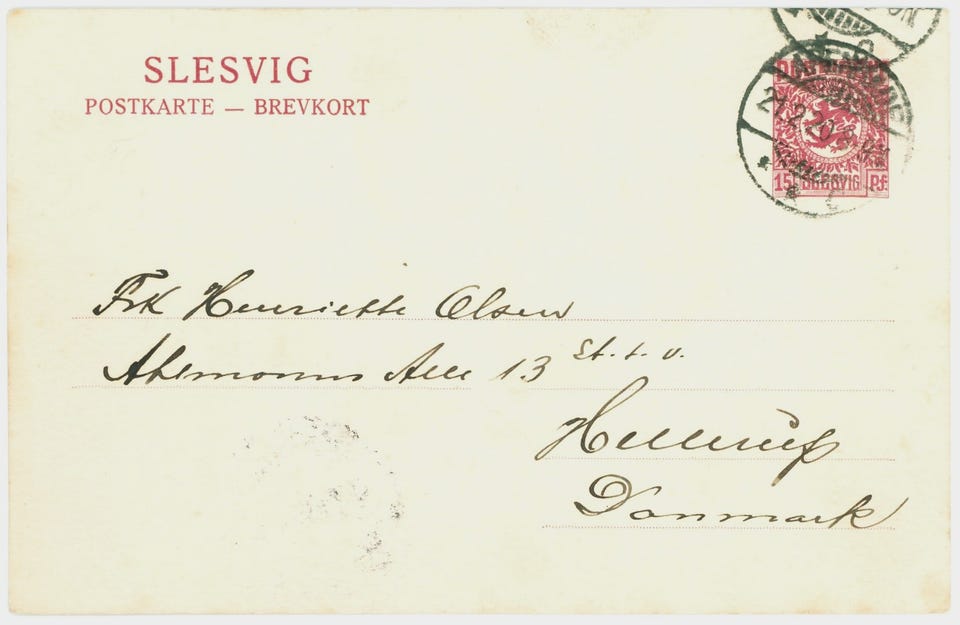 SLESVIG
POSTKARTE — BREVKORT
15 Pf. SLESVIG Pf.
Frk Henriette Olsen
Ahlmanns Alle 13 St. t. v.
Hellerup
Danmark